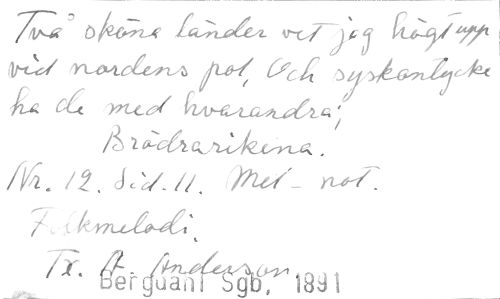 Två sköna länder vet jag högt upp
vid nordens pol, Och syskontycke
ha de med hvarandra;
Brödrarikena.
Nr. 12. Sid. 11. Mel-not.
Folkmelodi.
Tx. A. Anderson.
Berguant Sgb, 1891